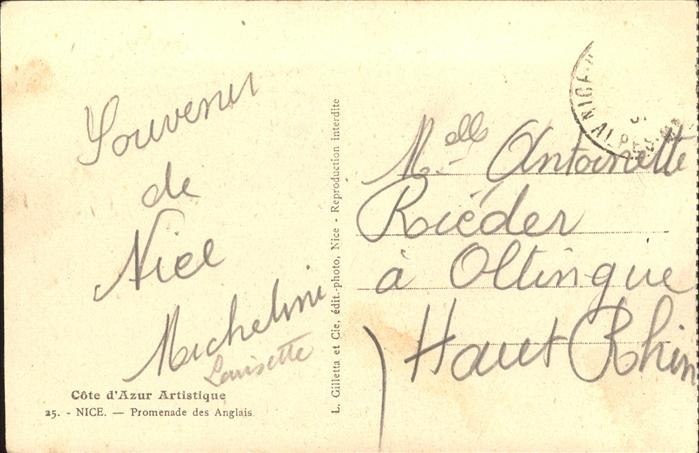 Souvenir
de
Nice
Micheline
Louisette
Côte d'Azur Artistique
25. - NICE. — Promenade des Anglais
L. Gilletta et Cie, édit.-photo, Nice - Reproduction interdite
NICE
ALPES
Melle Antoinette
Rieder
à Oltingue
Haut Rhin